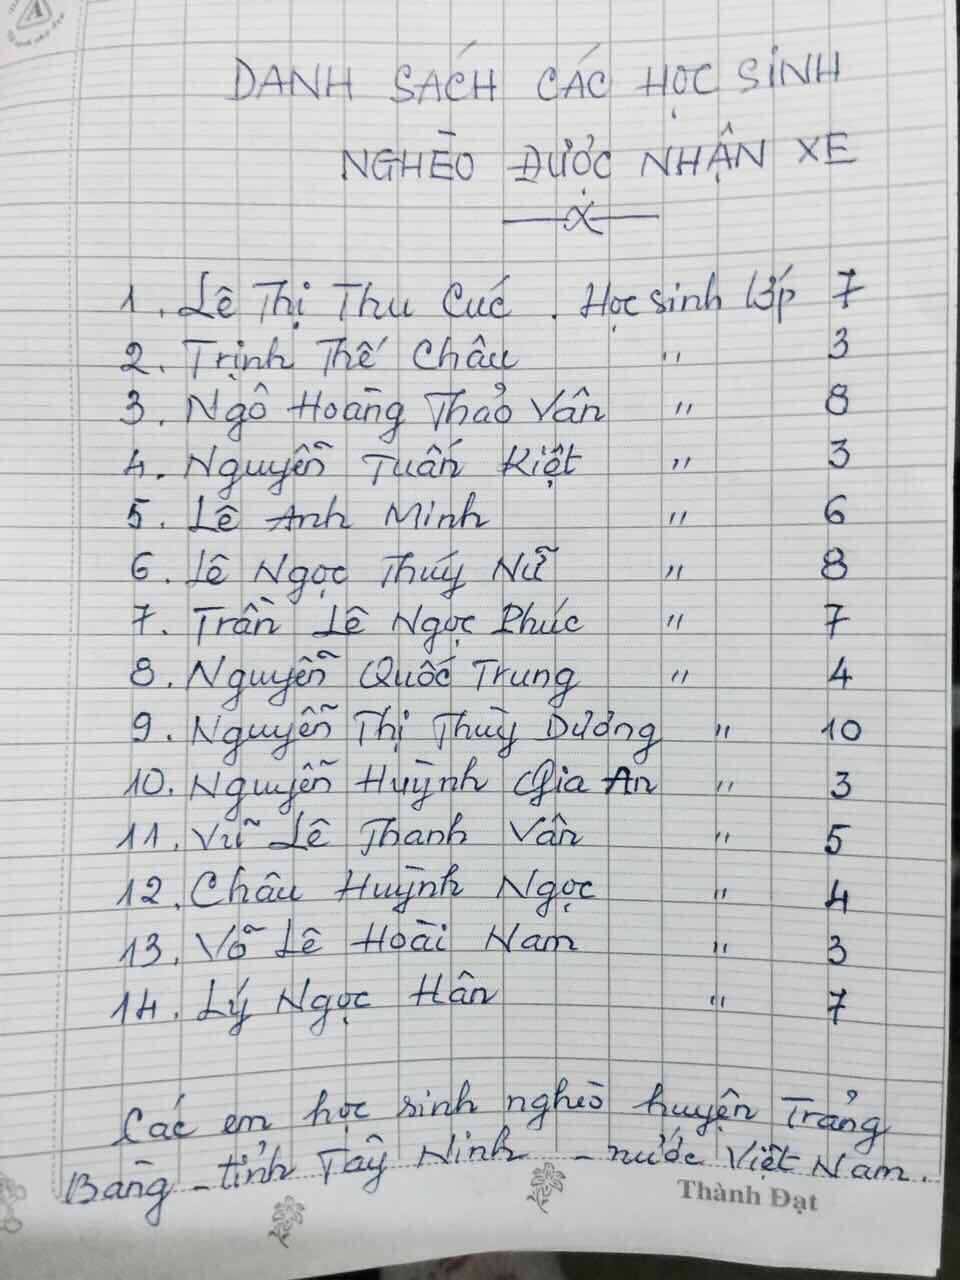 DANH SÁCH CÁC HỌC SINH
NGHÈO ĐƯỢC NHẬN XE
1. Lê Thị Thu Cúc. Học sinh lớp 7
2. Trịnh Thế Châu " 3
3. Ngô Hoàng Thảo Vân " 8
4. Nguyễn Tuấn Kiệt " 3
5. Lê Anh Minh " 6
6. Lê Ngọc Thúy Nữ " 8
7. Trần Lê Ngọc Phúc " 7
8. Nguyễn Quốc Trung " 4
9. Nguyễn Thị Thùy Dương " 10
10. Nguyễn Huỳnh Gia An " 3
11. Vũ Lê Thanh Vân " 5
12. Châu Huỳnh Ngọc " 4
13. Võ Lê Hoài Nam " 3
14. Lý Ngọc Hân " 7
Các em học sinh nghèo huyện Trảng
Bàng - tỉnh Tây Ninh - nước Việt Nam.
Thành Đạt